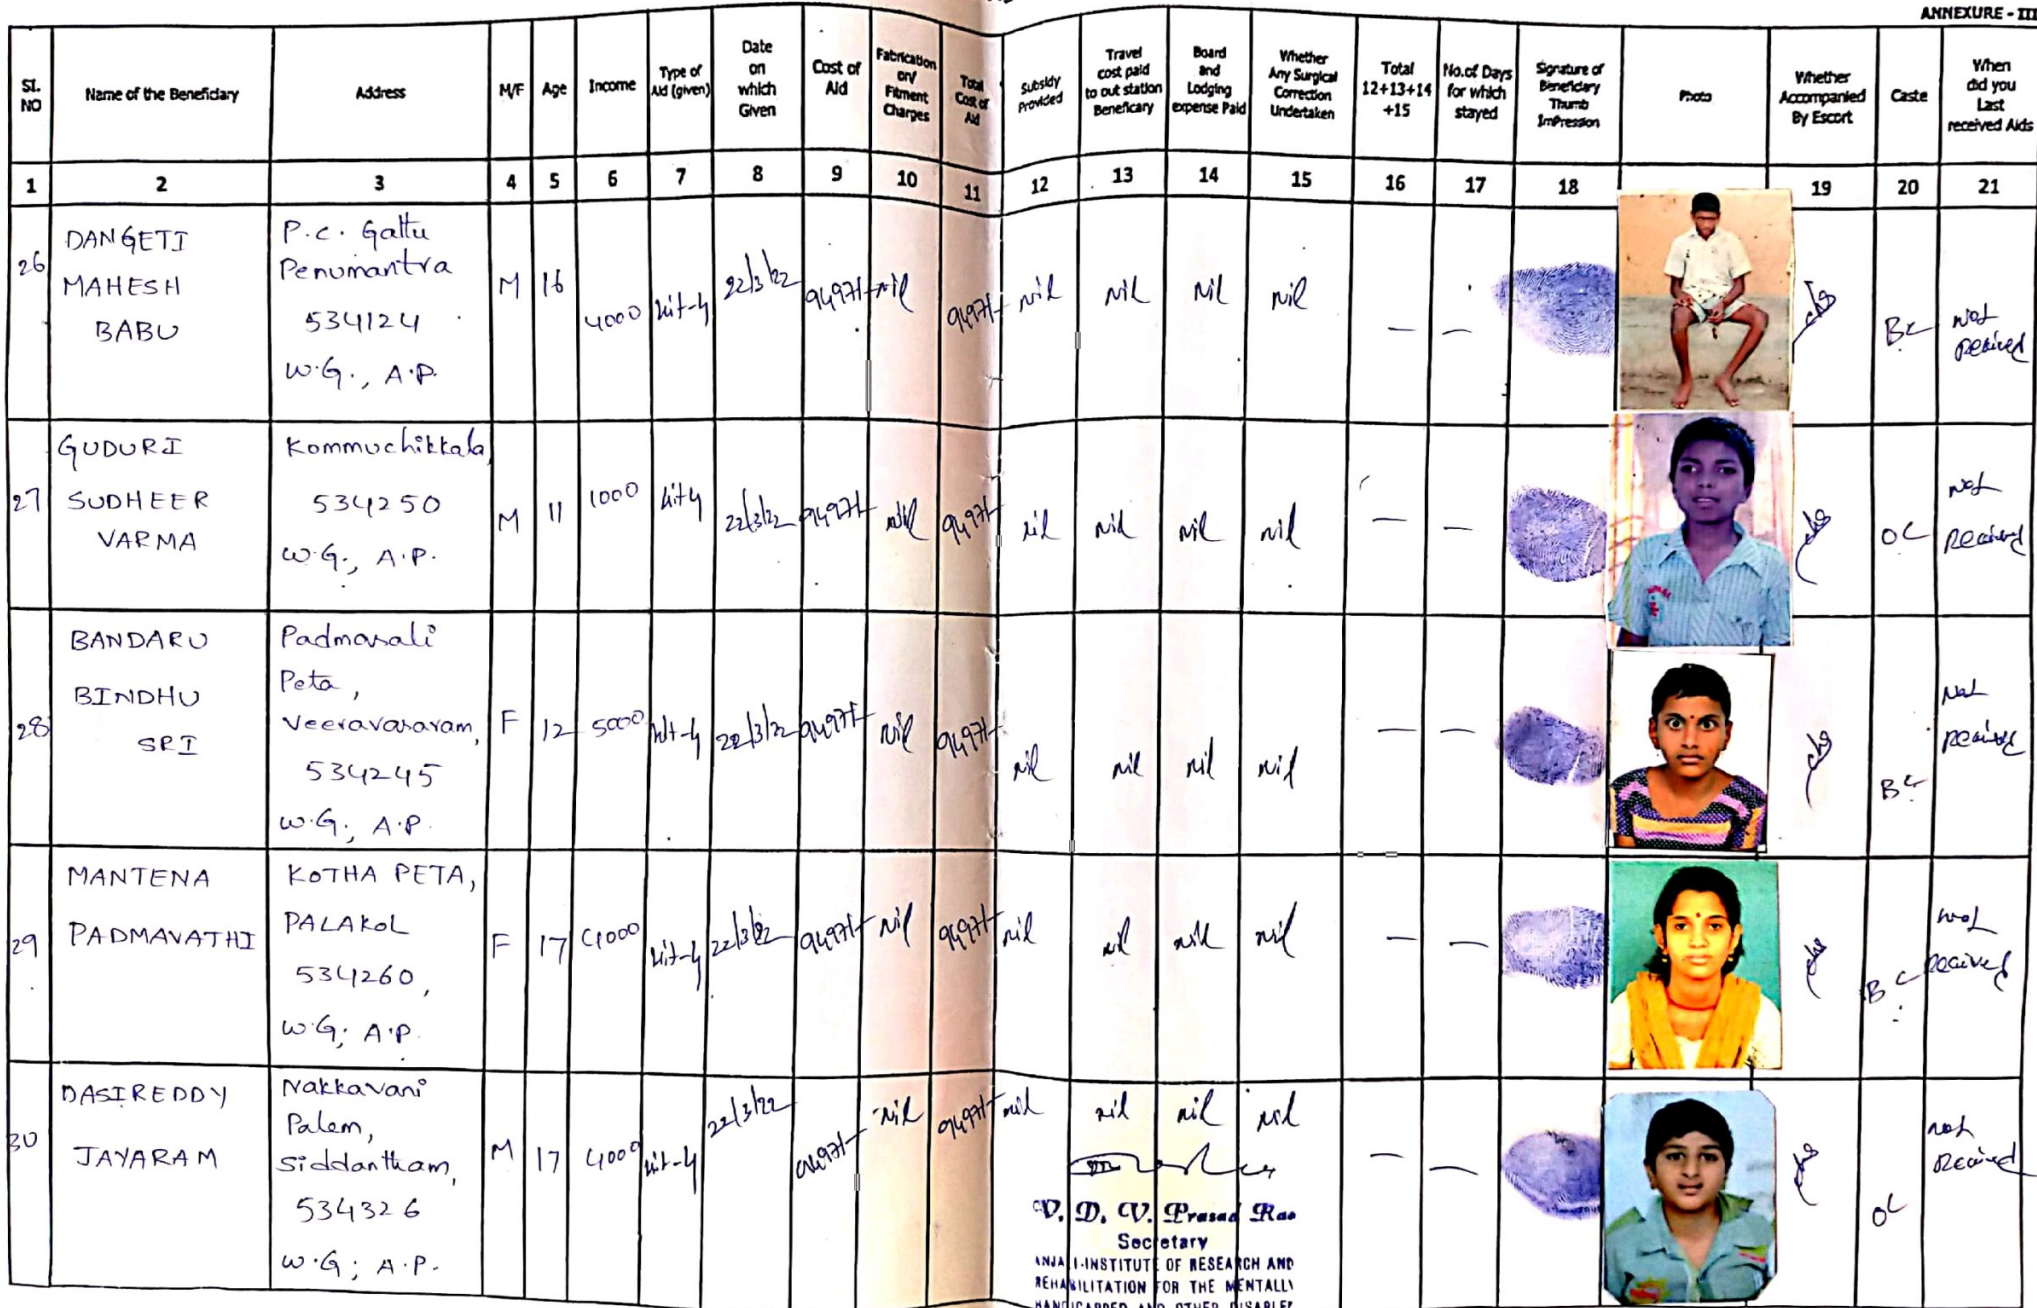 ANNEXURE - III
SI. NO
Name of the Beneficiary
Address
M/F
Age
Income
Type of Aid (given)
Date on which Given
Cost of Aid
Fabrication on/ Fitment Charges
Total Cost of Aid
Subsidy Provided
Travel cost paid to out station Beneficary
Board and Lodging expense Paid
Whether Any Surgical Correction Undertaken
Total 12+13+14 +15
No.of Days for which stayed
Signature of Beneficiary Thumb ImPression
Photo
Whether Accompanied By Escort
Caste
When did you Last received Aids
1 2 3 4 5 6 7 8 9 10 11 12 13 14 15 16 17 18 19 20 21
26
DANGETI
MAHESH
BABU
P.C. Gattu
Penumantra
534124
W.G., A.P.
M 16 4000 kit-4 22/3/22 9497/- nil 9497/- nil nil nil nil — —
BC
Not
received
27
GUDURI
SUDHEER
VARMA
Kommuchikkala,
534250
W.G., A.P.
M 11 1000 kit4 22/3/22 9497/- nil 9497/- nil nil nil nil — —
OC
Not
Received
28
BANDARU
BINDHU
SRI
Padmasali
Peta,
Veeravasaram,
534245
W.G; A.P.
F 12 5000 kit-4 22/3/22 9497/- nil 9497/- nil nil nil nil — —
BC
Not
received
29
MANTENA
PADMAVATHI
KOTHA PETA,
PALAKOL
534260,
W.G; A.P.
F 17 4000 kit-4 22/3/22 9497/- nil 9497/- nil nil nil nil — —
BC
Not
received
30
DASIREDDY
JAYARAM
Nakkavani
Palem,
Siddantham,
534326
W.G; A.P.
M 17 4000 kit-4 22/3/22 9497/- nil 9497/- nil nil nil nil — —
OC
Not
Received
V. D. V. Prasad Rao
Secretary
ANJALI-INSTITUTE OF RESEARCH AND
REHABILITATION FOR THE MENTALLY
HANDICAPPED AND OTHER DISABLED